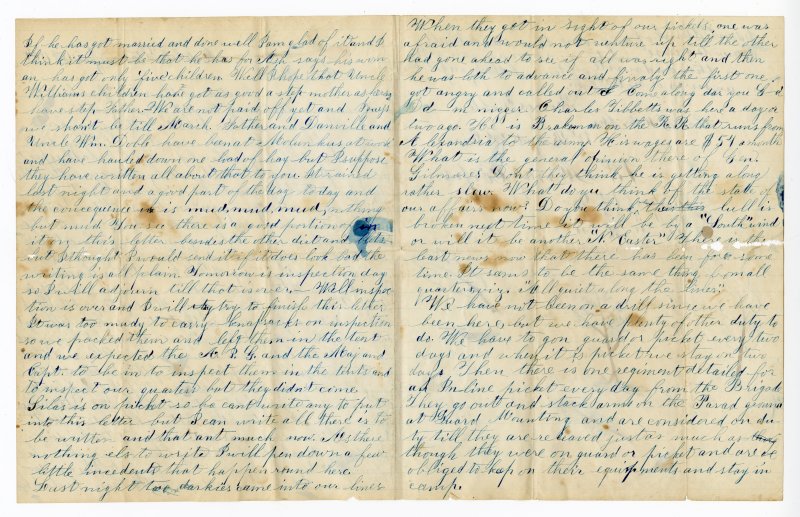 If he has got married and done well I am glad of it and I
think it must be that he has for Aly says his wom
an has got only "five" children Well I hope that Uncle
Williams children have got as good a step mother as hers
have step Father. We are not paid off yet and I guess
we shant be till March. Father and Danville and
Uncle Wm. Goble have been at Molunkus at work
and have hauled down one load of hay but I suppose
they have written all about that to you. It rained
last night and a good part of the day to day and
the consequence is mud, mud, mud, nothing
but mud You see there is a good portion of
it on this letter besides the other dirt and blots
but I thought I would send it if it does look bad the
writing is all plain. Tomorrow is inspection day
so I will adjourn till that is over — Well inspec
tion is over and I will try to finish this letter
It was too muddy to carry knapsacks on inspection
so we packed them and left them in the tent
and we expected the A. I. G. and the Maj and
Capt. to be in to inspect them in the tents and
to inspect our quarters but they didn't come.
Silas is on picket so he cant write any to put
into this letter but I can write all there is to
be written and that ant much now. As there
nothing els to write I will pen down a few
little incedents that happen round here.
Last night two darkies came into our lines
When they got in sight of our pickets, one was
afraid and would not venture up till the other
had gone ahead to see if all was right and then
he was loth to advance and finaly the first one
got angry and called out Come along dar you G—d
D—d m nigger Charles Tibbetts was here a day or
two ago. He is Brakeman on the R.R. that runs from
Alexandria to the army. His wages are $54 a month
What is the general opinion there of Gen.
Gilmore's Dont they think he is getting along
rather slow. What do you think of the state of
our affairs now? Do you think, this lull is
broken next time it will be by a "South" wind
or will it be another N. "Easter"? The
last news now that there has been for some
time. It seems to be the same thing. Small
quarters viz. "All quiet along the lines".
We have not been on a drill since we have
been here, but we have plenty of other duty to
do. We have to go on guard or picket every two
days and when it is picket we stay on two
days. Then there is one regiment detailed for
an Inline picket every day from the Brigad
They go out and stack arms on the Parad ground
at Guard Mounting and are considered on du
ty till they are releaved just as much as
though they were on guard or picket and are
obliged to kep on their equipments and stay in
camp.